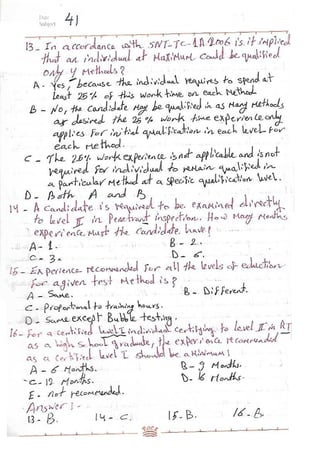 Date
Subject
41
13- In accordance with SNT-TC-1A 2006 is it implied
that an individual at Maximum could be qualified
only 4 Methods?
A- Yes, because the individual requires to spend at
least 25% of this work time on each Method.
B- No, the Candidate May be qualified in as Many Methods
as desired the 25% work time experience only
applies For initial qualification in each level For
each Method.
C- The 25% work experience is not applicable and is not
required For individual to remain qualified in
a particular Method at a specific qualification level.
D- Both A and B
14- A Candidate is required to be examined directly
to level II in Penetrant inspection. How Many Months
experience Must the Candidate have?
A- 1. B- 2.
C- 3. D- 6.
15- Experience recommended For all the levels of eduction
For a given test Method is?
A- Same. B- Different.
C- Proportional to training hours.
D- Same except Bubble testing.
16- For a certified level I individual certifying to level II in RT
as a high school graduate, the experience recommended
as a certified level I should be a Minimum?
A- 6 Months. B- 9 Months.
C- 12 Months. D- 18 Months.
E- not recommended.
Answer:-
13- B. 14- C. 15- B. 16- B.